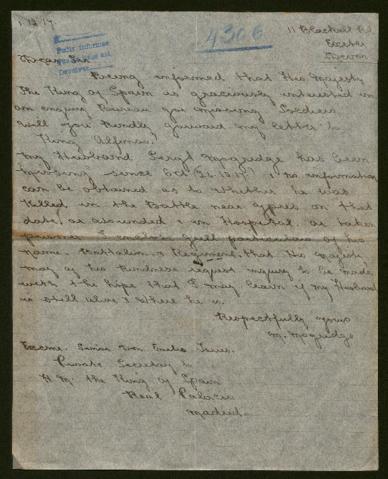 1.12.17.
11 Blackall Rd
Exeter
Devon
4306
Dear Sir
Being informed that His Majesty
The King of Spain is graciously interested in
an enquiry Bureau for missing Soldiers
will you kindly forward my letter to
King Alfonso.
My Husband Sergt Mogridge has been
missing since Oct 1917 & no information
can be obtained as to whether he was
killed in the Battle near Ypres on that
date, or wounded & in Hospital, or taken
prisoner I enclose full particulars of his
name, Battalion & Regiment that His Majesty
may of his kindness request inquiry to be made
with the hope that I may learn if my Husband
is still alive & where he is.
Respectfully yours
M. Mogridge
Excmo. Senior Don Emilio
Private Secretary to
H.M. the King of Spain
Real Palacio
Madrid.